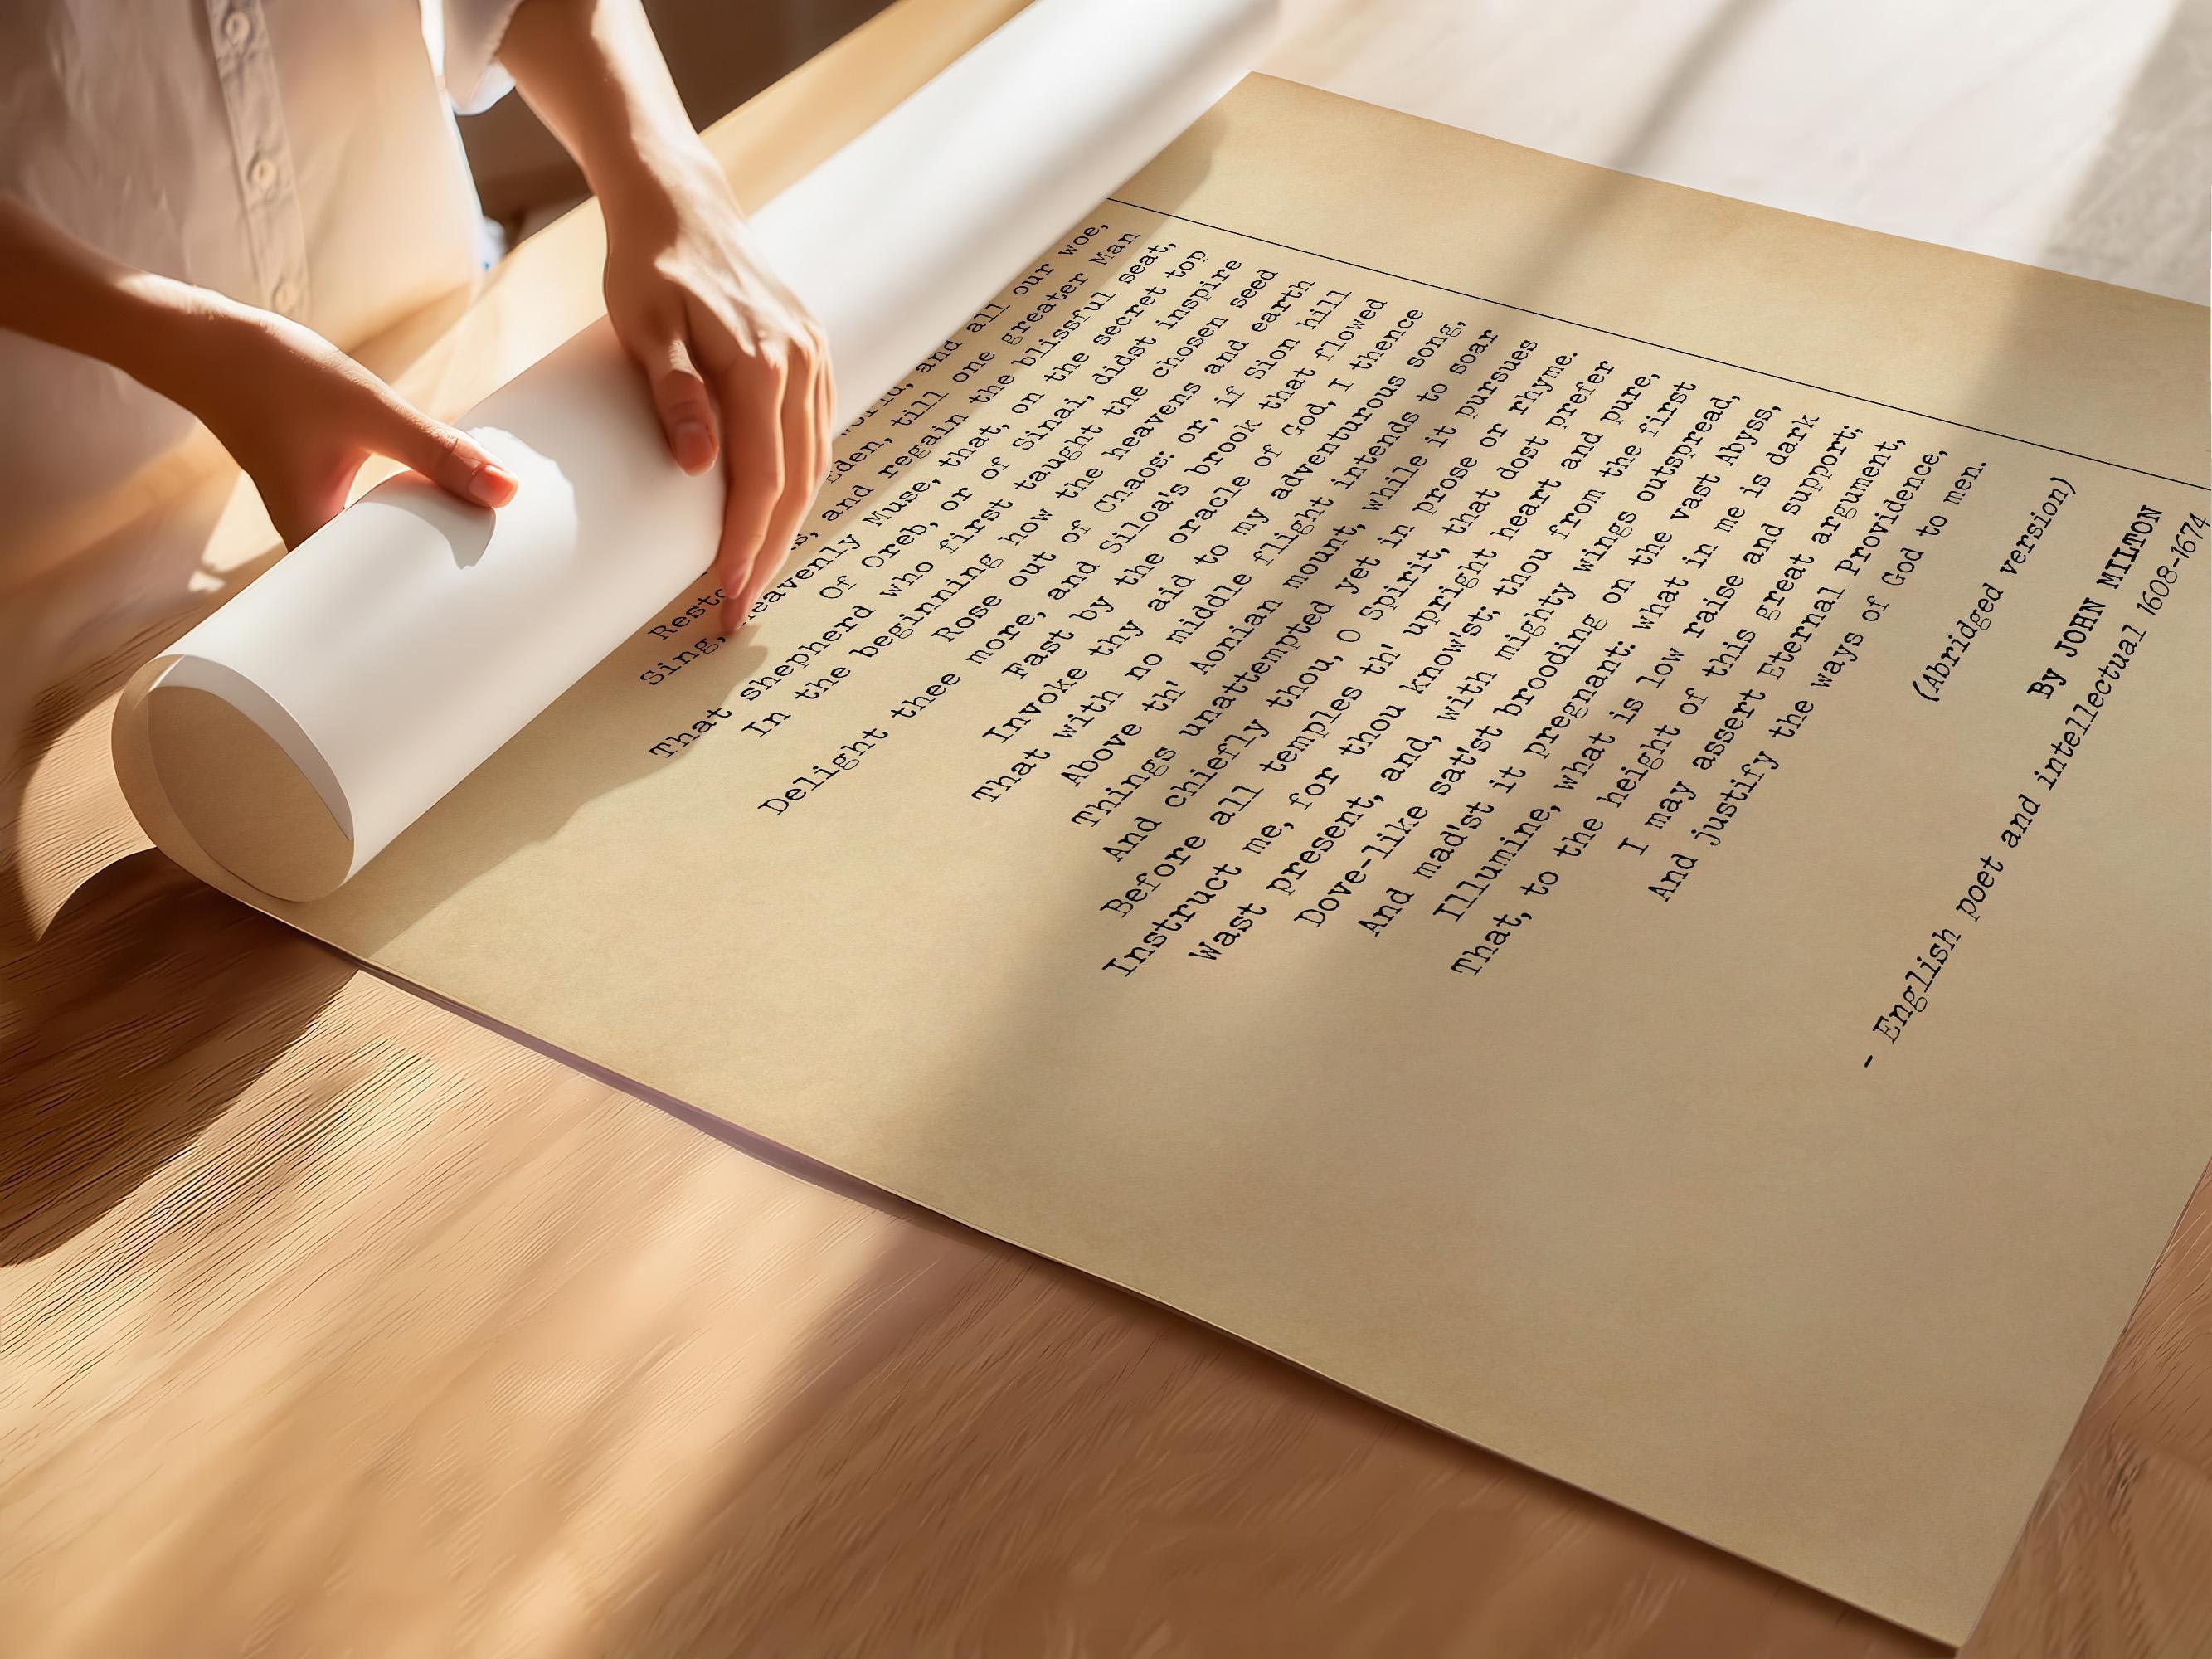 and all our woe,
Eden, till one greater Man
and regain the blissful seat,
Sing, Heavenly Muse, that, on the secret top
Of Oreb, or of Sinai, didst inspire
That shepherd who first taught the chosen seed
In the beginning how the heavens and earth
Rose out of Chaos: or, if Sion hill
Delight thee more, and Siloa's brook that flowed
Fast by the oracle of God, I thence
Invoke thy aid to my adventurous song,
That with no middle flight intends to soar
Above th' Aonian mount, while it pursues
Things unattempted yet in prose or rhyme.
And chiefly thou, O Spirit, that dost prefer
Before all temples th' upright heart and pure,
Instruct me, for thou know'st; thou from the first
Wast present, and, with mighty wings outspread,
Dove-like sat'st brooding on the vast Abyss,
And mad'st it pregnant: what in me is dark
Illumine, what is low raise and support;
That, to the height of this great argument,
I may assert Eternal Providence,
And justify the ways of God to men.
(Abridged version)
By JOHN MILTON
- English poet and intellectual 1608-1674